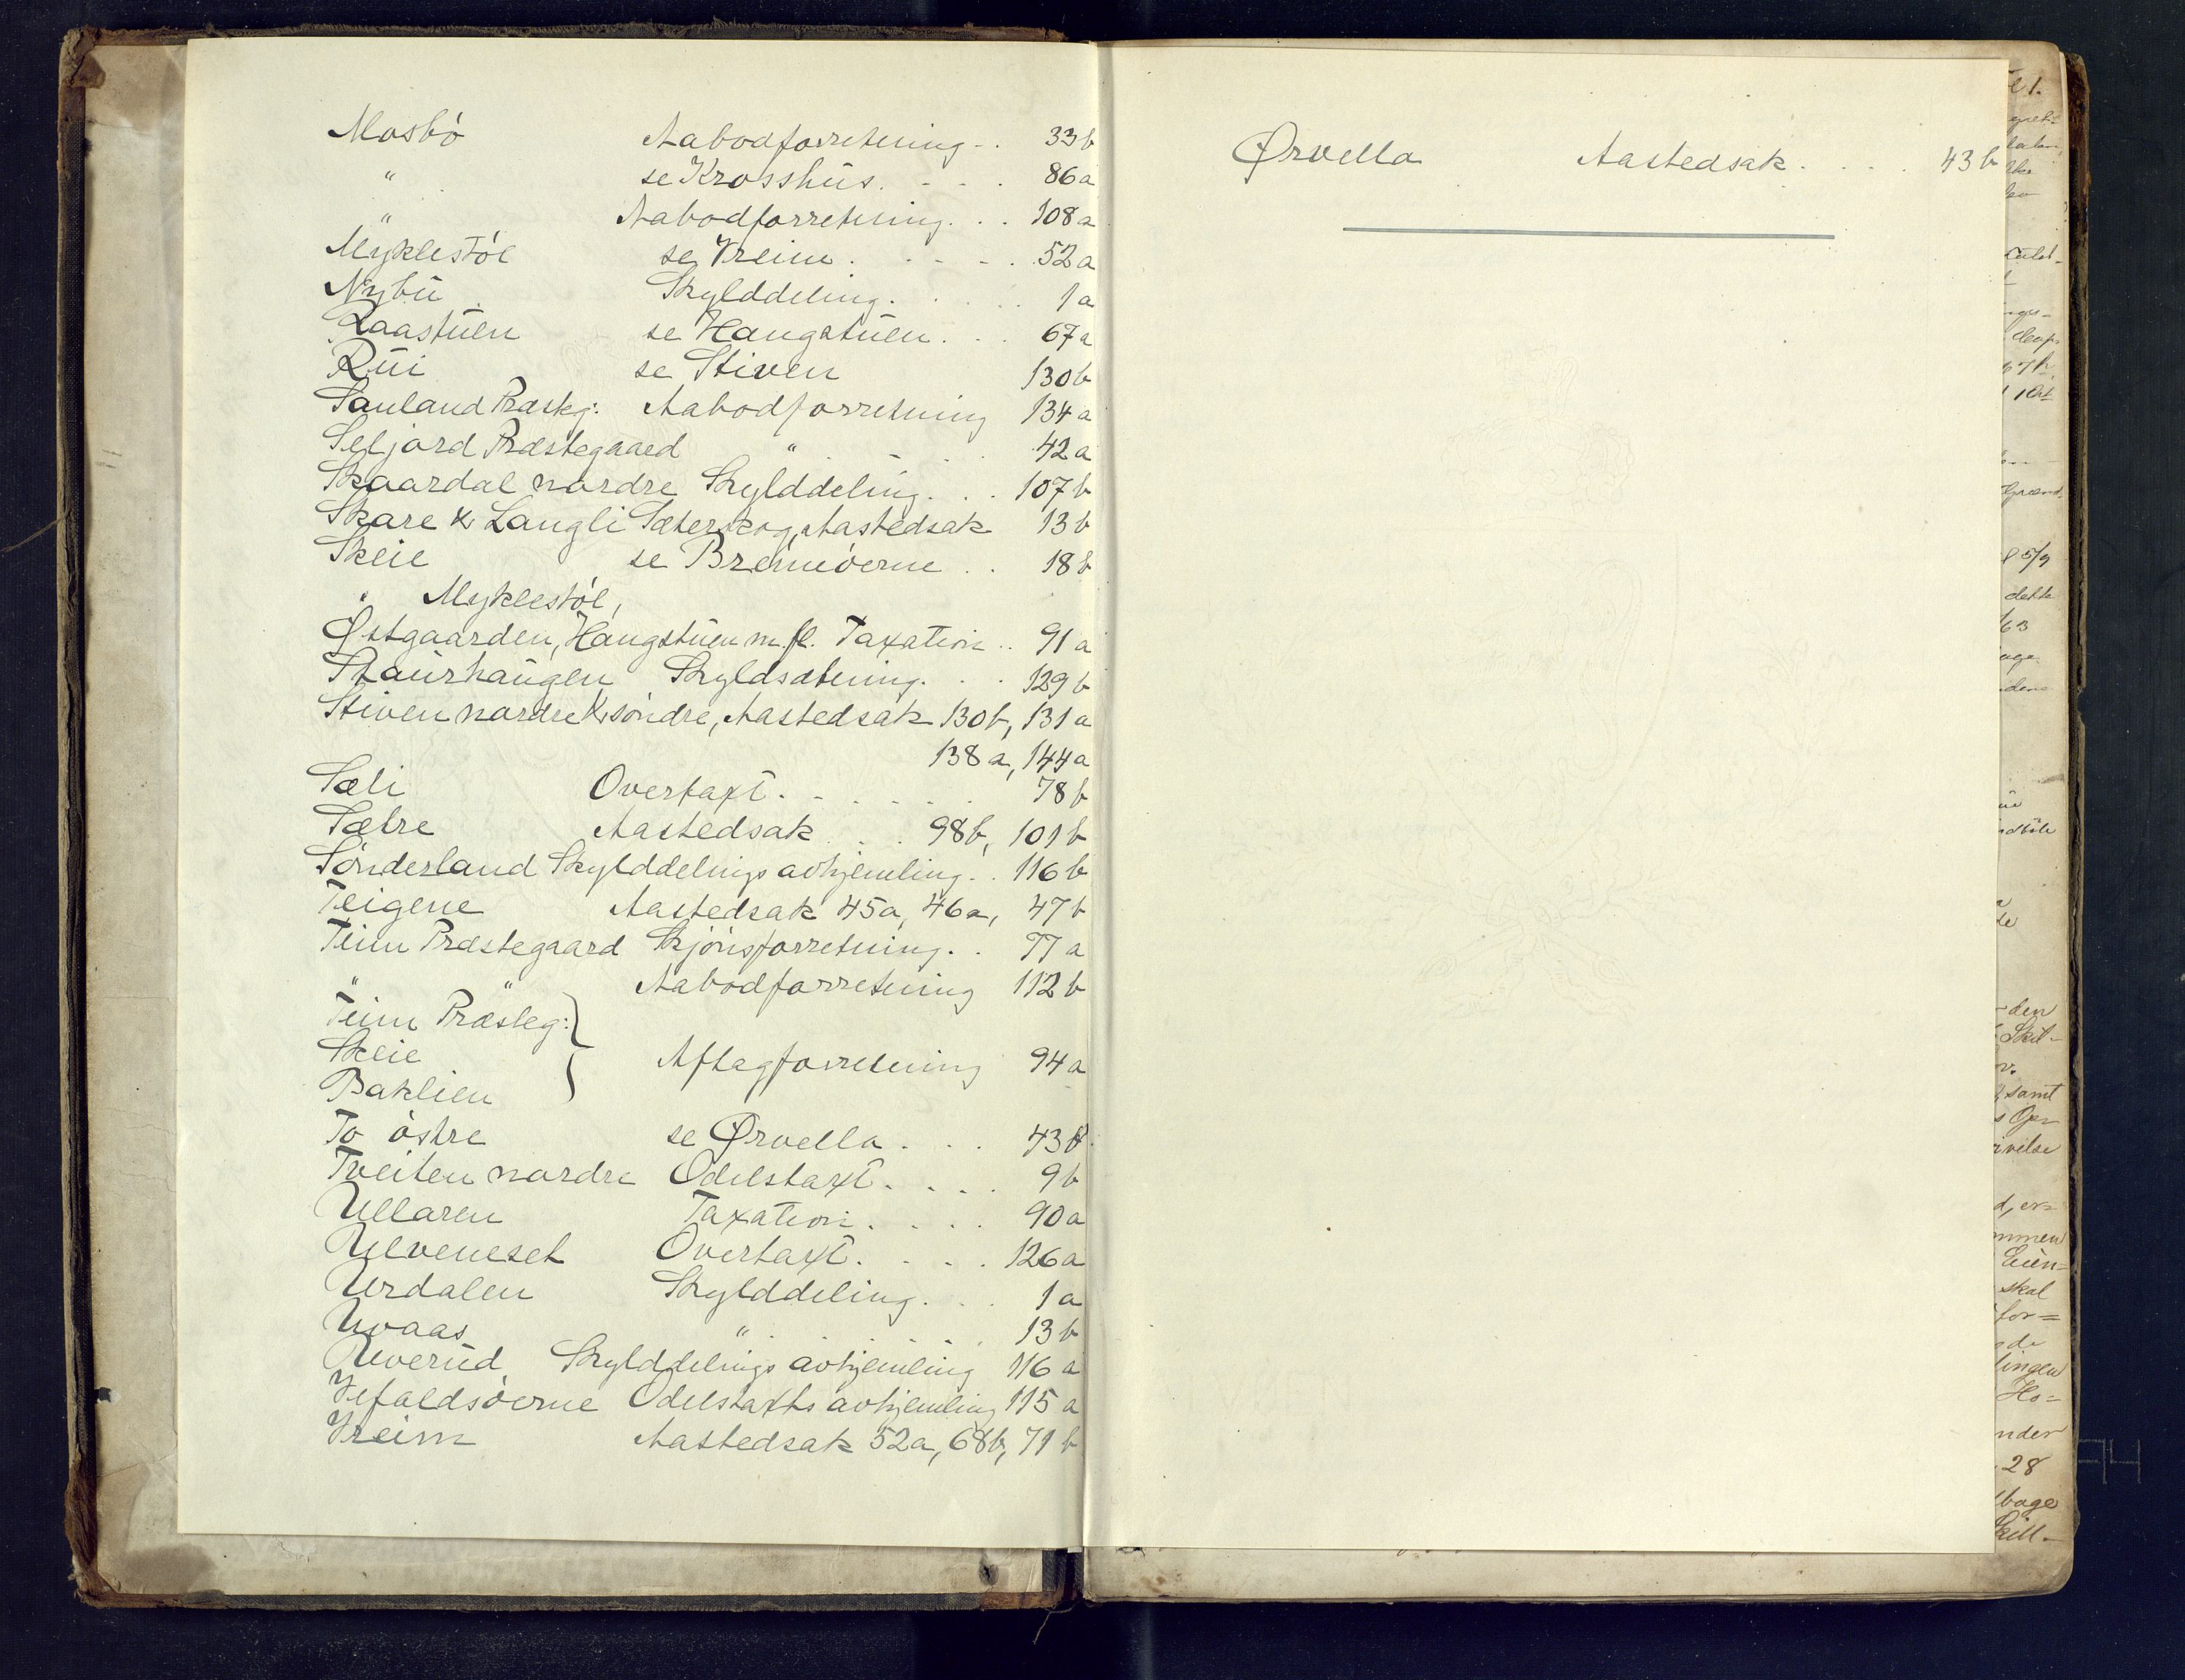 Mosbö Aabodforretning - . 33b
" se Krosshus. - - . 86a
" Aabodforretning. . . 108a
Myklestöl se Vreim . . - - . 52a
Nybu Skylddeling. . . . . 1a
Raastuen se Haugstuen. . . 67a
Rui se Stiven 130b
Sauland Præsteg: Aabodforretning 134a
Seljord Præstegaard " . . . . 42a
Skaardal nordre Skylddeling. . . 107b
Skare & Langli Sæterskog, Aastedsak 13b
Skeie se Bremeöerne . . 18b
" Myklestöl,
Östgaarden, Haugstuen m. fl. Taxation . . 91a
Staurhaugen Skyldsætning. . . 129b
Stiven nordre & söndre, Aastedsak 130b, 131a
138a, 144a
Sæli Overtaxt. . . . . . 78b
Sætre Aastedsak . . . 98b, 101b
Sönderland Skylddelings avhjemling. . 116b
Teigene Aastedsak 45a, 46a, 47b
Tinn Præstegaard Skjönsforretning. . 77a
" " Aabodforretning 112b
Tinn Præsteg: }
Skeie } Aftagforretning 94a
Baklien
To östre se Ørvella . . . 43b
Tveiten nordre Odelstaxt. . . . 9b
Ullaren Taxation . . . . 90a
Ulveneset Overtaxt. . . . . 126a
Urdalen Skylddeling. . . 1a
Uvaas " . . . . . 13b
Uverud Skylddelings avhjemling 116a
Vefaldsöerne Odelstaxts avhjemling 115a
Vreim Aastedsak 52a, 68b, 71b
Ørvella Aastedsak. . . . 43b
den
samt
skal
28